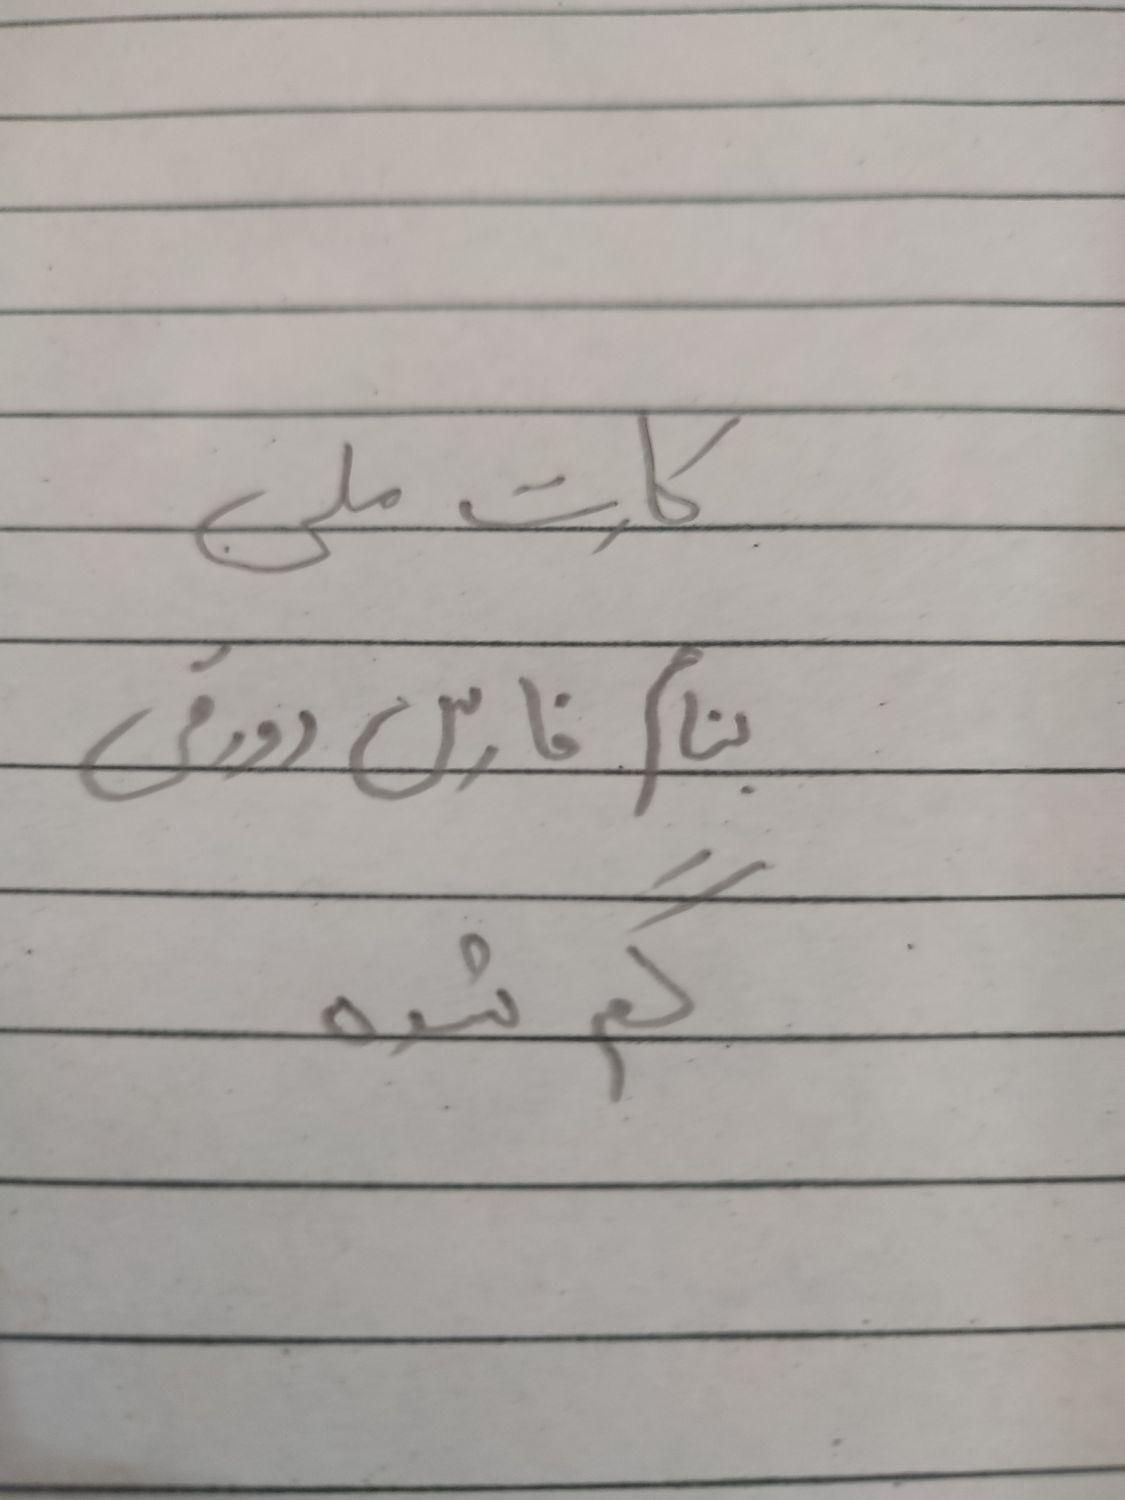 کارت ملی
بنام فارس دورقی
گم شده